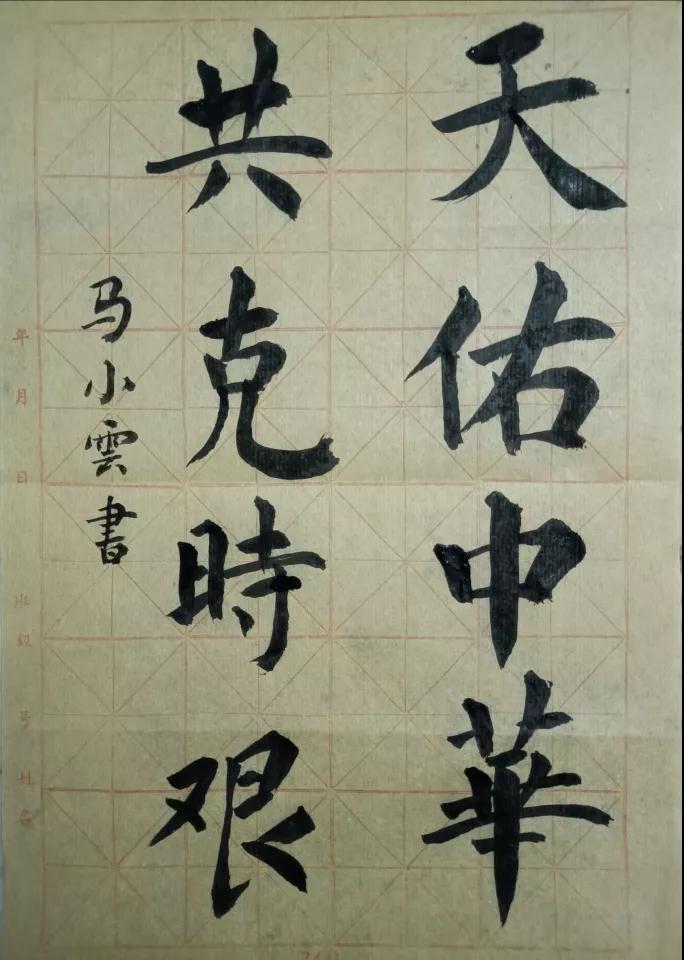 天佑中華
共克時艰
马小雲書
年 月 日 班级 号 姓名